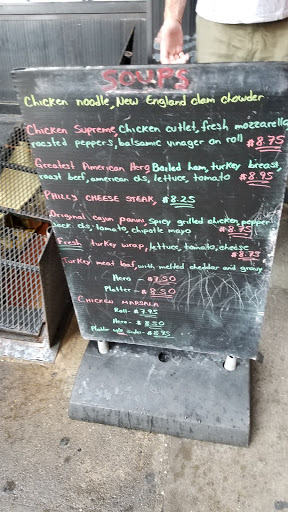 SOUPS
Chicken noodle, New England clam chowder
Chicken Supreme, Chicken cutlet, fresh mozzarella
roasted peppers, balsamic vinager on roll $8.75
Greatest American Hero Boiled ham, turkey breast,
roast beef, american chs, lettuce, tomato $8.95
PHILLY CHEESE STEAK, $8.25
Original cajun panini Spicy grilled chicken, pepper
Jack chs, tomato, chipotle mayo $8.75
Fresh turkey wrap, lettuce, tomato, cheese
$8.75
Turkey meat loaf, with melted cheddar and gravy
Hero - $7.50
Platter - $8.50
CHICKEN MARSALA
Roll - $7.95
Hero - $8.50
Platter w/ - $8.95